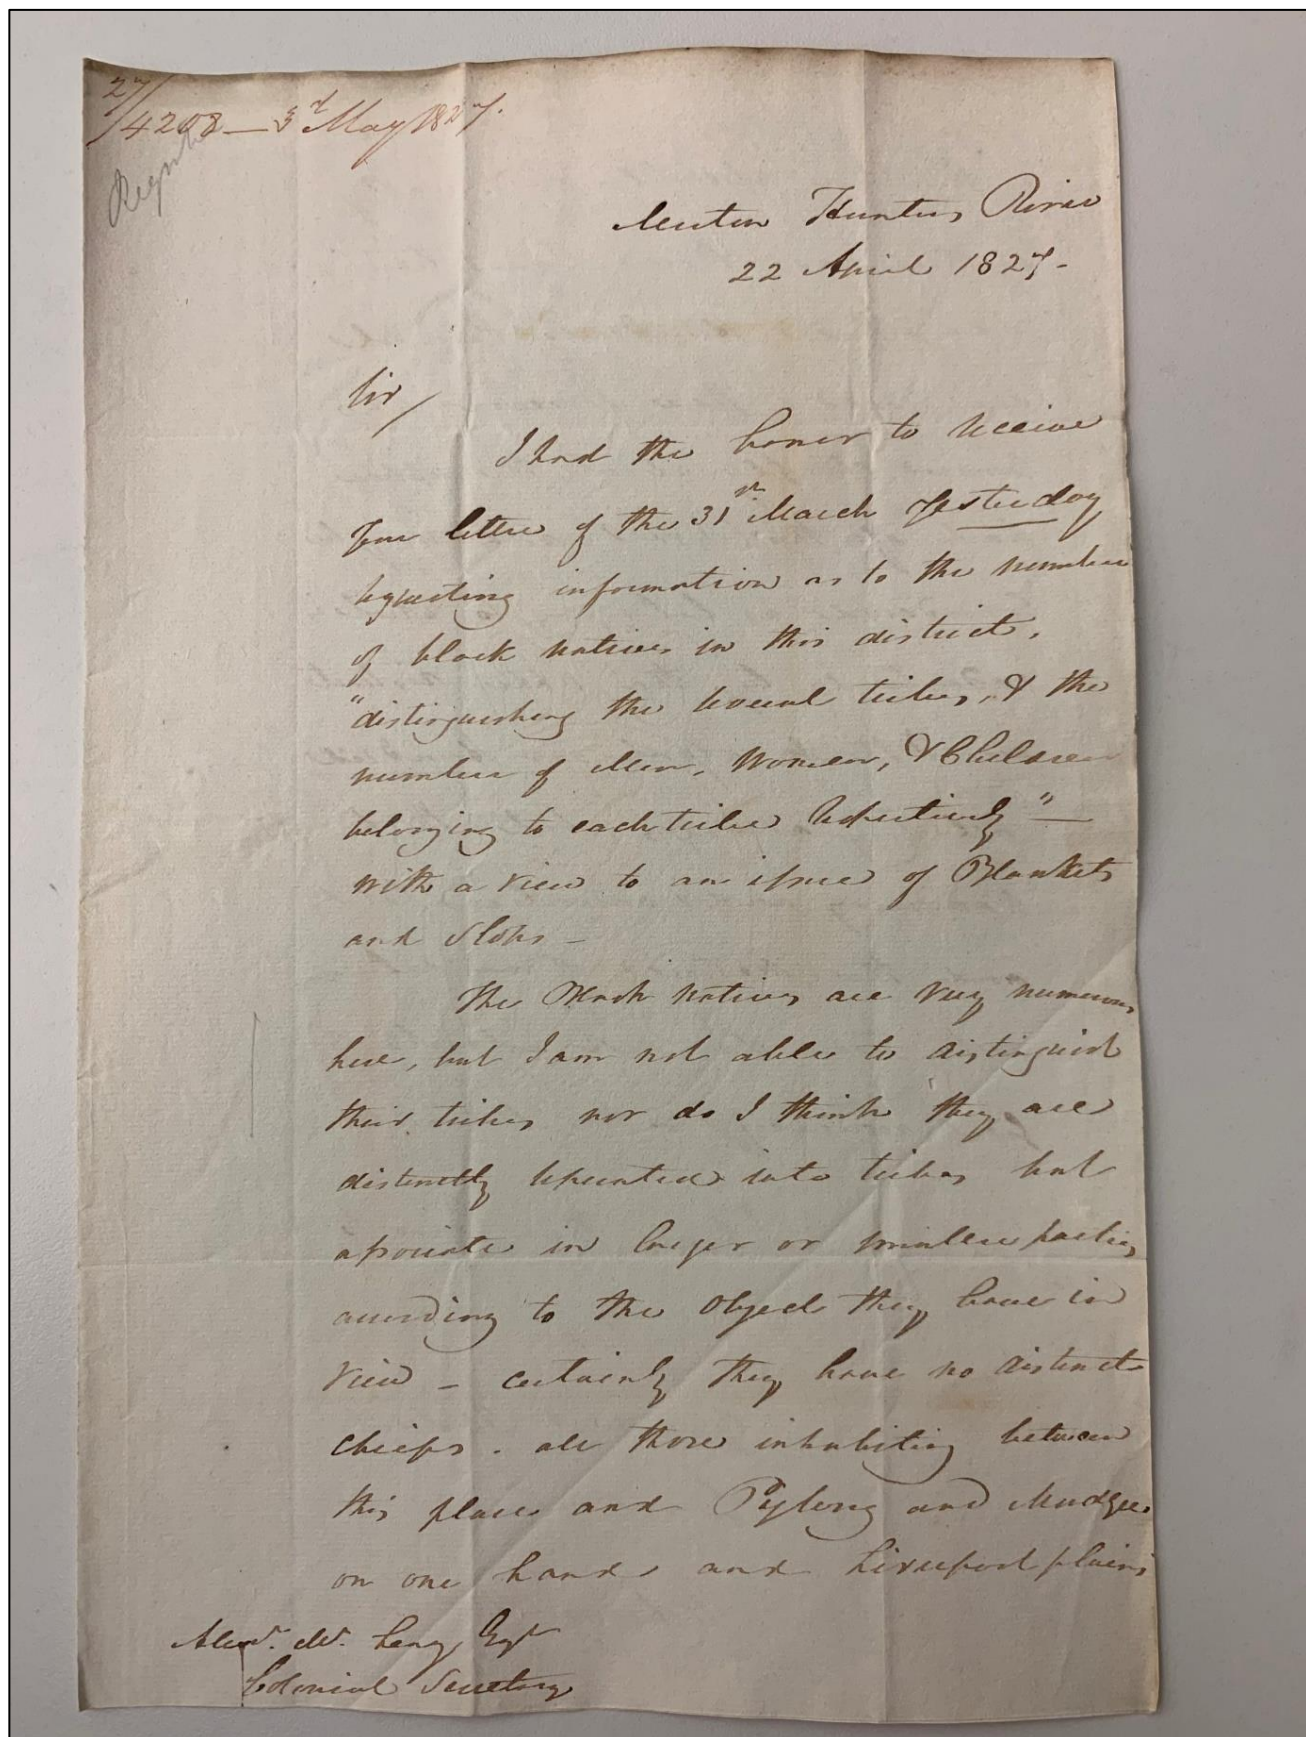 27/4208 — 3d May 1827.
Merton Hunters River
22 April 1827-
Sir/
I had the honor to receive
your letter of the 31st March yesterday
requesting information as to the number
of black natives in this district,
"distinguishing the several tribes, & the
number of Men, Women, & Children
belonging to each tribe respectively" —
with a view to an issue of Blankets
and Slops —
The Black natives are very numerous
here, but I am not able to distinguish
their tribes nor do I think they are
distinctly separated into tribes but
associate in larger or smaller parties
according to the Object they have in
view — certainly they have no distinct
chiefs. all those inhabiting between
this place and Pylong and Mudgee
on one hand and Liverpool plains
Alexr. Mc. Leay Esqr
Colonial Secretary